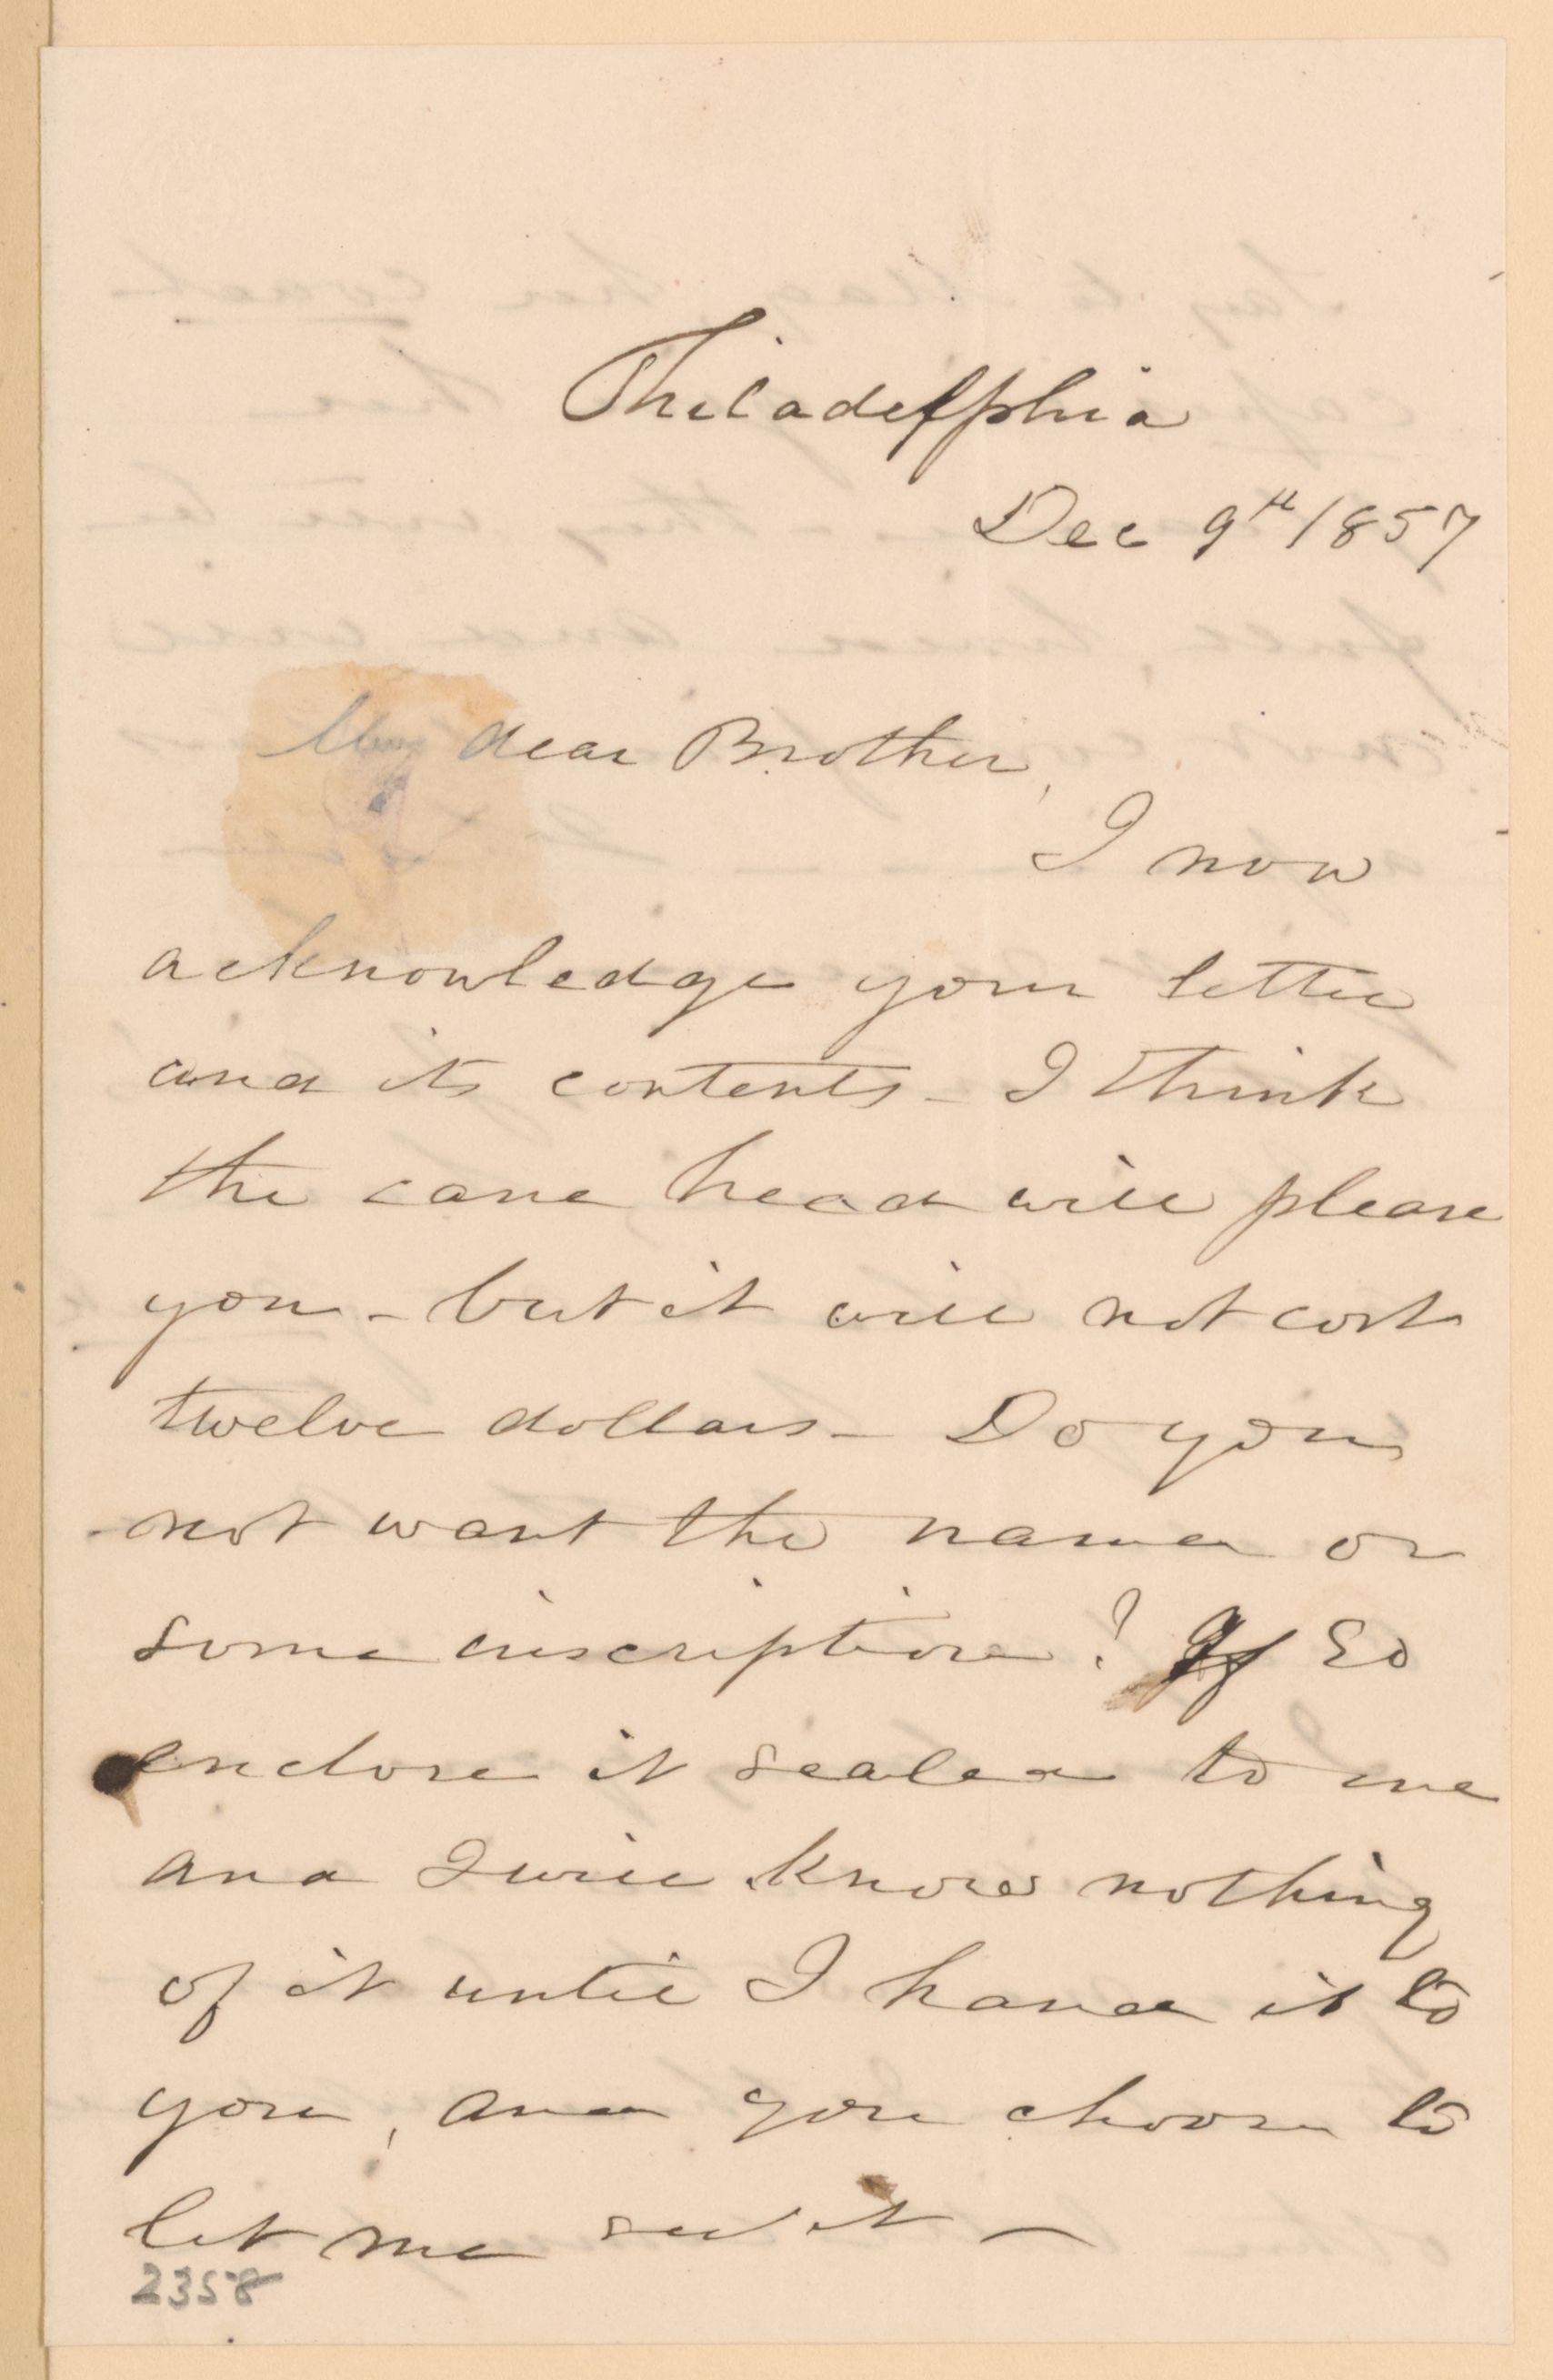 Philadelphia
Dec 9th 1857
My dear Brother,
I now
acknowledge your letter
and its contents - I think
the cane head will please
you - but it will not cost
twelve dollars - Do you
not want the name or
some inscription? If so
enclose it sealed to me
and I will know nothing
of it until I hand it to
you, and you choose to
let me see it -
2358